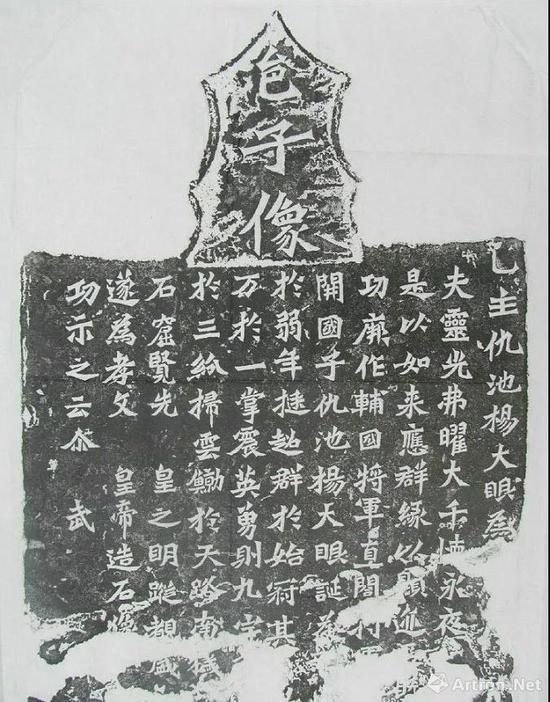 邑子像
邑主仇池楊大眼為
夫靈光弗曜大千懷永夜
是以如来應群緣以顯迹
功厥作輔國將軍直閤將
開國子仇池楊大眼誕承
於弱年挺超群於始冠其
万於一掌震英勇則九宇
於三紛掃雲鯨於天路南穢
石窟覽先 皇之明蹤覩盛
遂為孝文 皇帝造石像
功示之云尒 武
Artron.Net